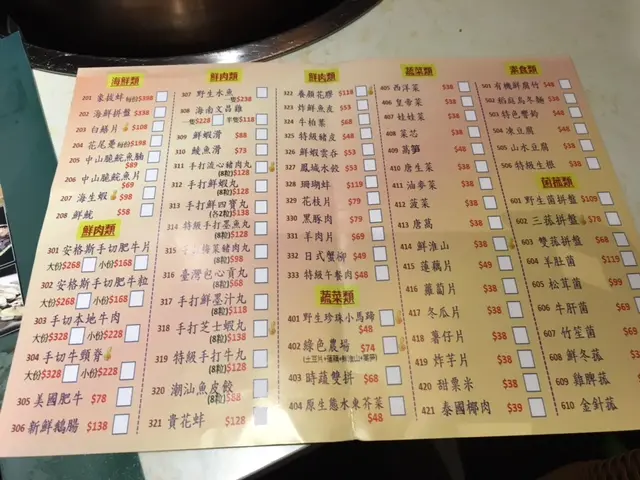 海鮮類
201 象拔蚌 每份$398
202 海鮮拼盤 $338
203 白鱔片 $108
204 花尾躉 每份$198
205 中山脆鯇魚腩 $89
206 中山脆鯇魚片 $69
207 海生蝦 $98
208 鮮魷 $58
鮮肉類
301 安格斯手切肥牛片
大份$268 小份$168
302 安格斯手切肥牛粒
大份$268 小份$168
303 手切本地牛肉
大份$328 小份$228
304 手切牛頸脊
大份$328 小份$228
305 美國肥牛 $78
306 新鮮鵝腸 $138
鮮肉類
307 野生水魚
一隻$238
308 海南文昌雞
一隻$228 半隻$118
309 鮮蝦滑 $88
310 鯪魚滑 $73
311 手打流心豬肉丸
(8粒)$128
312 手打鮮蝦丸
(8粒)$138
313 手打鮮四寶丸
(各2粒)$138
314 特級手打墨魚丸
(8粒)$128
315 手打梅菜豬肉丸
(8粒)$98
316 臺灣包心貢丸
(8粒)$68
317 手打鮮墨汁丸
(8粒)$118
318 手打芝士蝦丸
(8粒)$138
319 特級手打牛丸
(8粒)$128
320 潮汕魚皮餃
(8粒)$88
321 貴花蚌 $128
鮮肉類
322 養顏花膠 $118
323 炸鮮魚皮 $53
324 牛柏葉 $68
325 特級豬皮 $48
326 鮮蝦雲吞 $53
327 鳳城水餃 $53
328 珊瑚蚌 $119
329 花枝片 $79
330 黑豚肉 $79
331 羊肉片 $69
332 日式蟹柳 $49
333 特級午餐肉 $48
蔬菜類
401 野生珍珠小馬蹄
$48
402 綠色農場 $74
403 時蔬雙拼 $68
404 原生態水東芥菜
$48
蔬菜類
405 西洋菜 $38
406 皇帝菜 $38
407 娃娃菜 $38
408 菜芯 $38
409 萵筍 $48
410 唐生菜 $38
411 油麥菜 $38
412 菠菜 $38
413 唐萵 $38
414 鮮淮山 $38
415 蓮藕片 $49
416 蘿蔔片 $38
417 冬瓜片 $38
418 薯仔片 $38
419 炸芋片 $38
420 甜粟米 $38
421 泰國椰肉 $39
素食類
501 有機鮮腐竹 $48
502 稻庭烏冬麵 $38
503 特色響鈴 $48
504 凍豆腐 $48
505 山水豆腐 $38
506 特級生根 $38
菌菇類
601 野生菌拼盤 $109
602 三菇拼盤 $78
603 雙菇拼盤 $68
604 羊肚菌 $119
605 松茸菌 $99
606 牛肝菌
607 竹笙菌
608 鮮冬菇
609 雞脾菇
610 金針菇